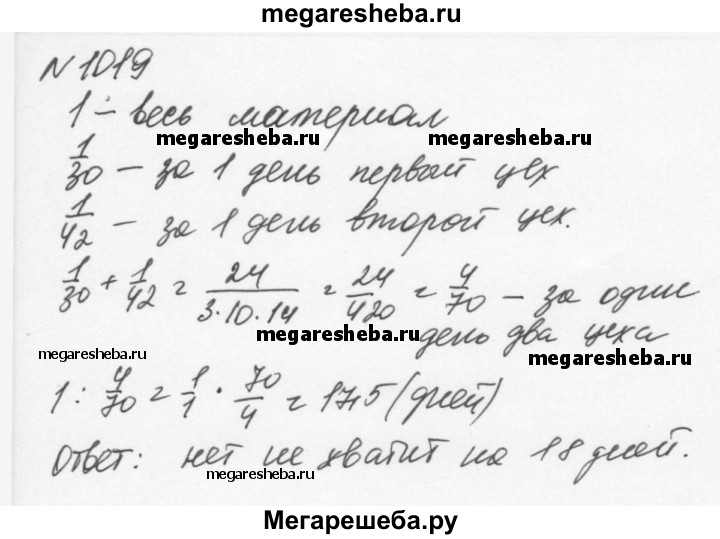 megaresheba.ru
№ 1019
1 – весь материал
megaresheba.ru megaresheba.ru
1/30 – за 1 день первый цех
1/42 – за 1 день второй цех.
1/30 + 1/42 = 24/3·10·14 = 24/420 = 4/70 – за один
megaresheba.ru
день два цеха
megaresheba.ru megaresheba.ru
1 : 4/70 = 1/1 · 70/4 = 17,5 (дней)
Ответ: нет не хватит на 18 дней.
megaresheba.ru
Мегарешеба.ру